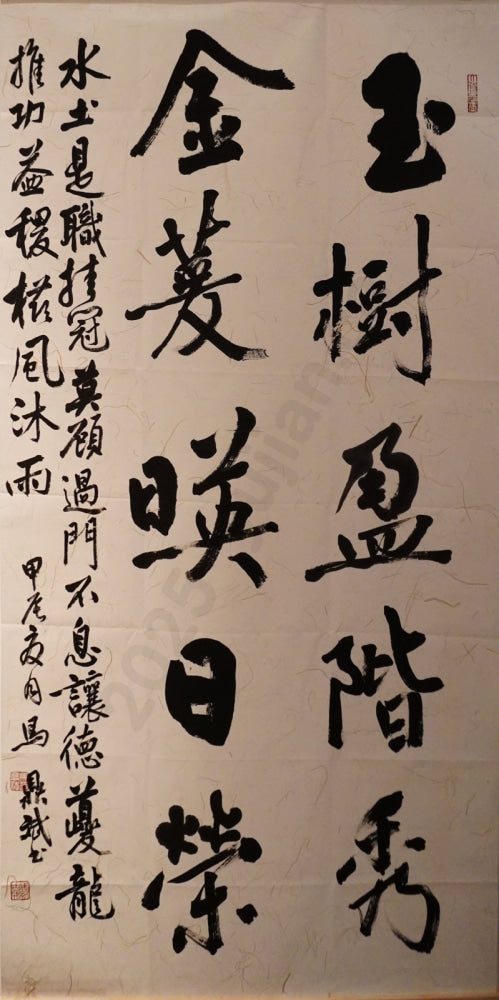 玉樹盈階秀
金萲暎日榮
水土是職挂冠莫顧過門不息讓德蘷龍
推功益稷櫛風沐雨 甲辰夏月馬鼎斌书